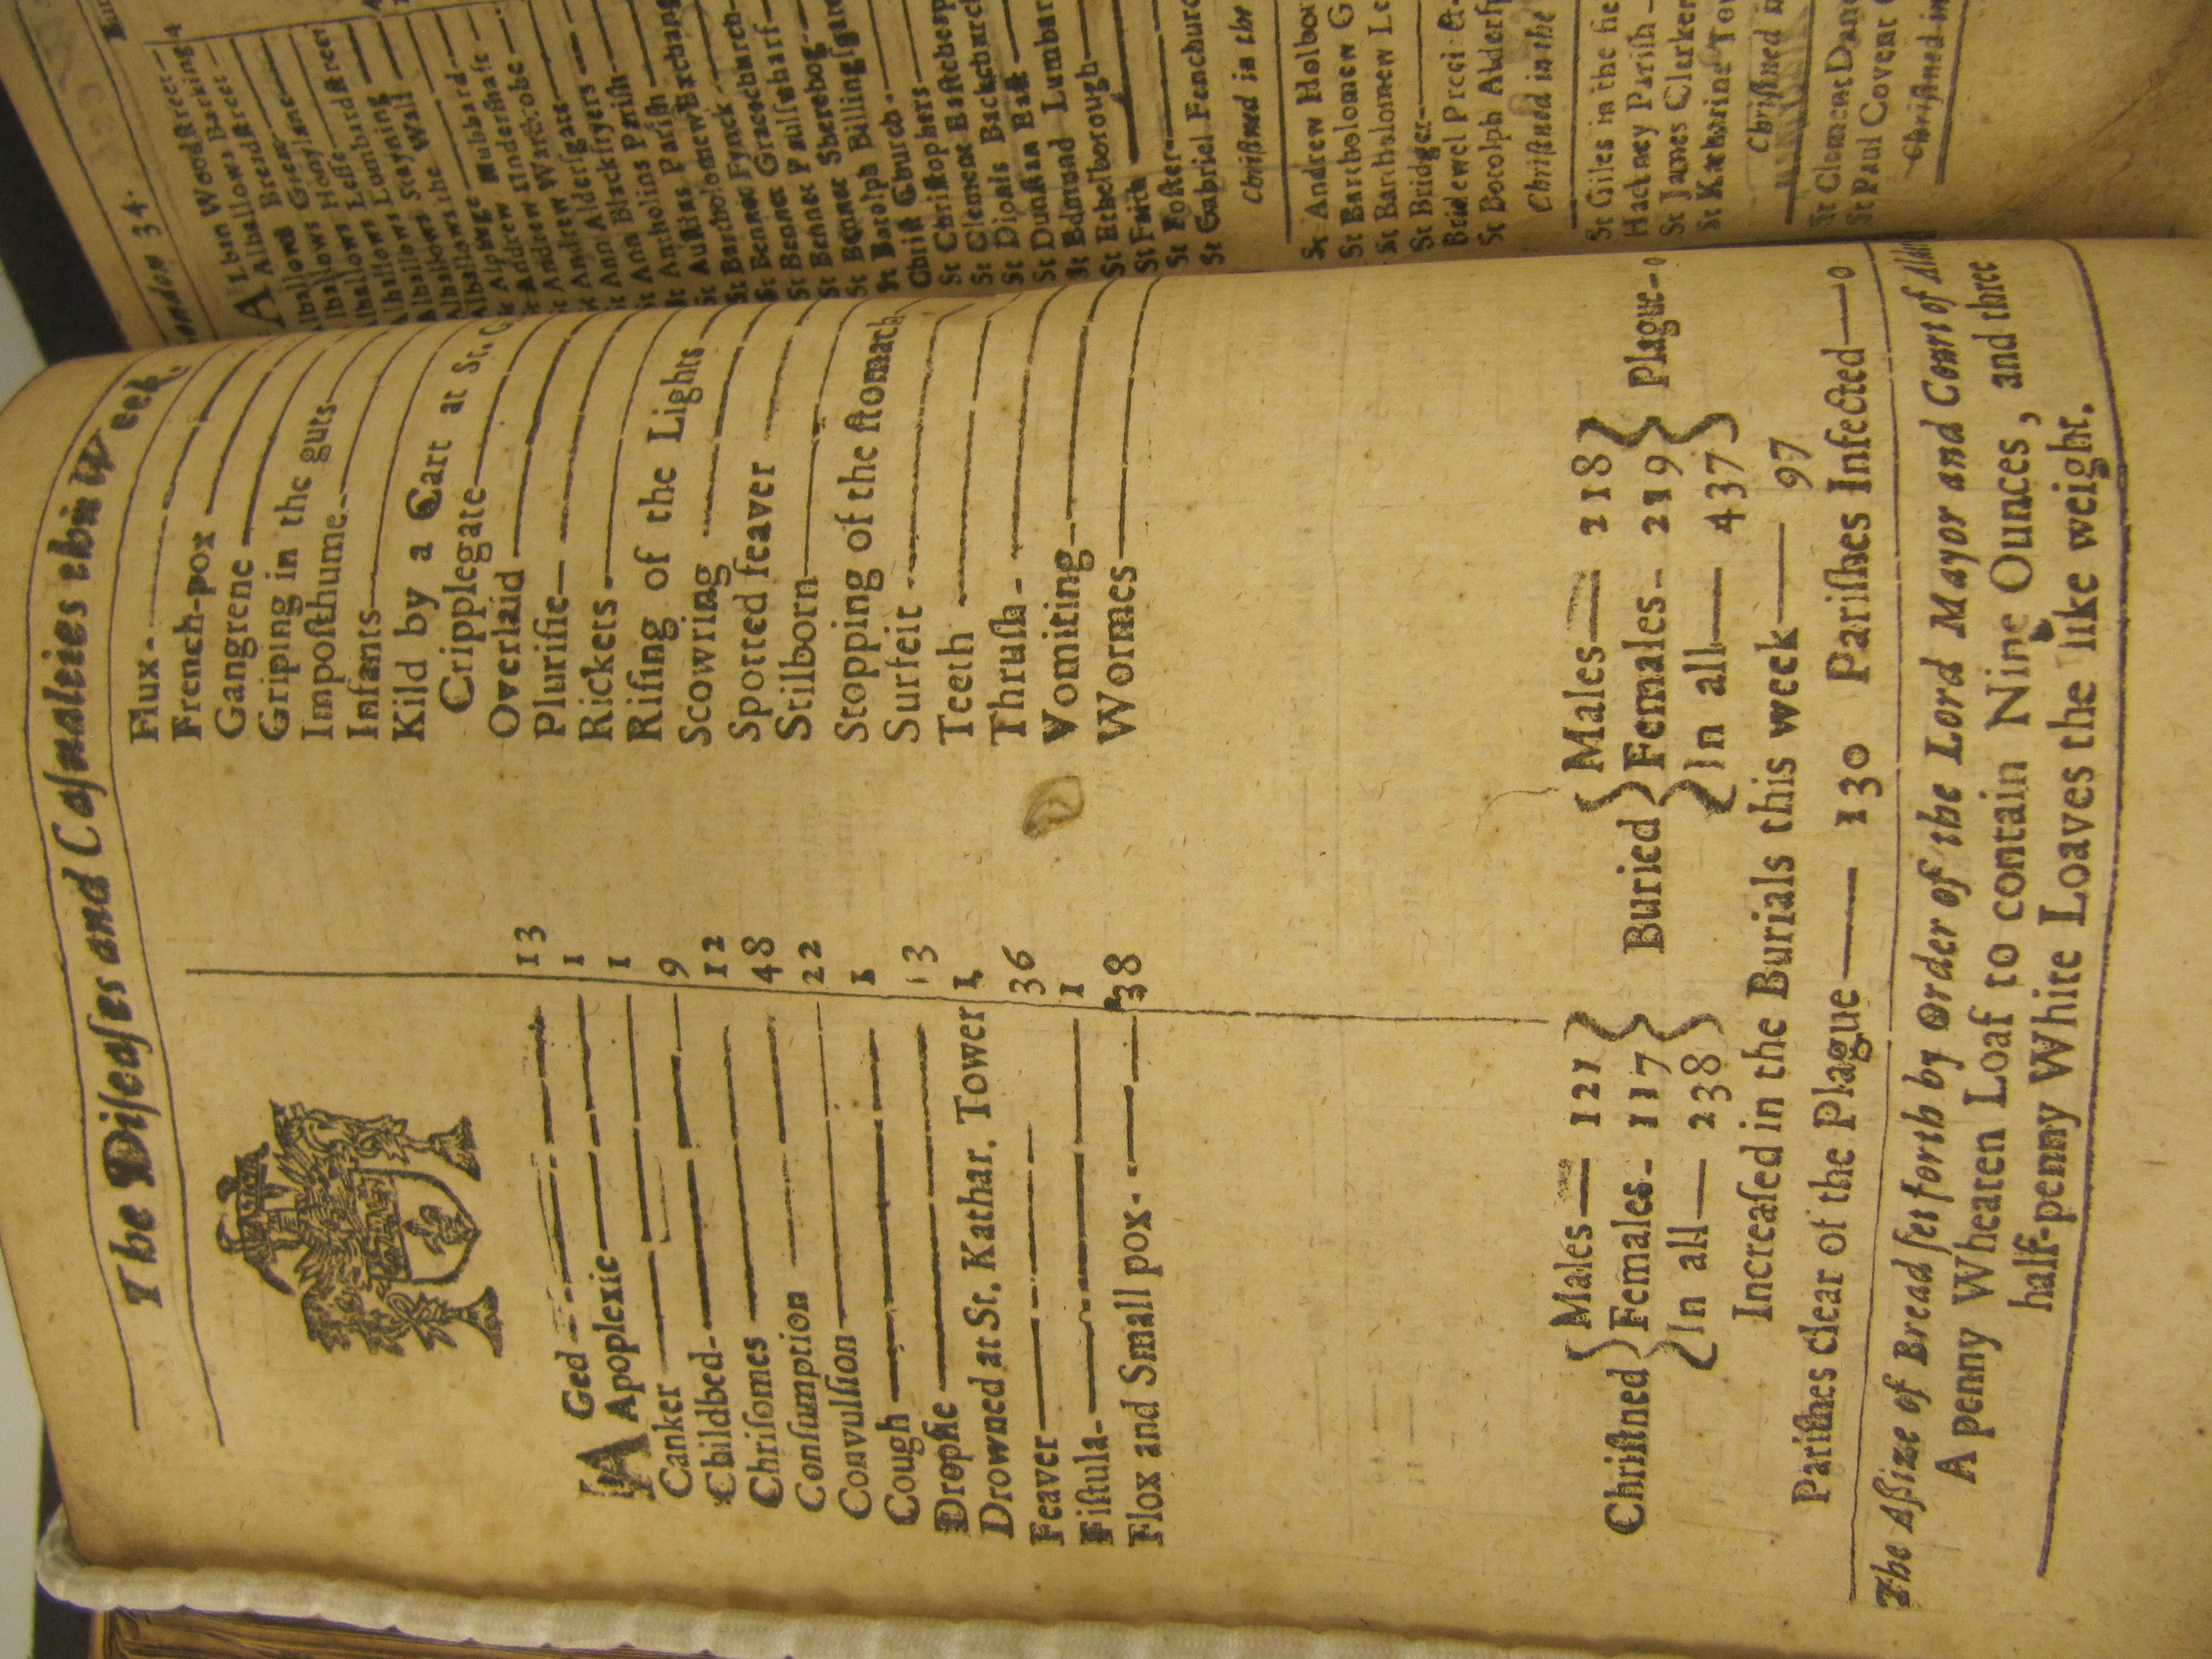 The Diſeaſes and Caſualties this Week.
AGed 13
Apoplexie 1
Canker 1
Childbed 9
Chriſomes 12
Conſumption 48
Convulſion 22
Cough 1
Dropſie 13
Drowned at St. Kathar. Tower 1
Feaver 36
Fiſtula 1
Flox and Small pox 38
Flux
French-pox
Gangrene
Griping in the guts
Impoſthume
Infants
Kild by a Cart at St. G
Cripplegate
Overlaid
Pluriſie
Rickets
Riſing of the Lights
Scowring
Spotted feaver
Stilborn
Stopping of the ſtomach
Surfeit
Teeth
Thruſh
Vomiting
Wormes
Chriſtned { Males 121 Females 117 In all 238 }
Buried { Males 218 Females 219 In all 437 } Plague 0
Increaſed in the Burials this week 97
Pariſhes clear of the Plague 130 Pariſhes Infected 0
The Aſſize of Bread ſet forth by Order of the Lord Mayor and Court of
A penny Wheaten Loaf to contain Nine Ounces, and three
half-penny White Loaves the like weight.
London 34.
ALban Woodſtreet
Alhallows Barking
Alhallows Breadſtreet
Alhallows Great
Alhallows Honylane
Alhallows Leſſe
Alhallows Lumbardſtreet
Alhallows Stayning
Alhallows the Wall
Alphage
Andrew Hubbard
Andrew Underſhaft
Andrew Wardrobe
Ann Alderſgate
Ann Blackfryers
St Antholins Pariſh
St Auſtins Pariſh
St Bartholomew Exchang
St Bennet Fynck
St Bennet Gracechurch
St Bennet Paulſwharf
St Bennet Sherehog
St Botolph Billingſgate
Chriſt Church
St Chriſtophers
St Clement Eaſtcheap
St Dionis Backchurch
St Dunſtan Eaſt
St Edmund Lumbar
St Ethelborough
St Faith
St Foſter
St Gabriel Fenchurc
Chriſtned in the
St Andrew Holbor
St Bartholomew G
St Bartholomew Le
St Bridget
Bridewel Preci
St Botolph Alderſ
Chriſtned in the
St Giles in the fie
Hackney Pariſh
St James Clerken
St Katharine Tow
Chriſtned in
St Clement Dane
St Paul Covent
Chriſtned in